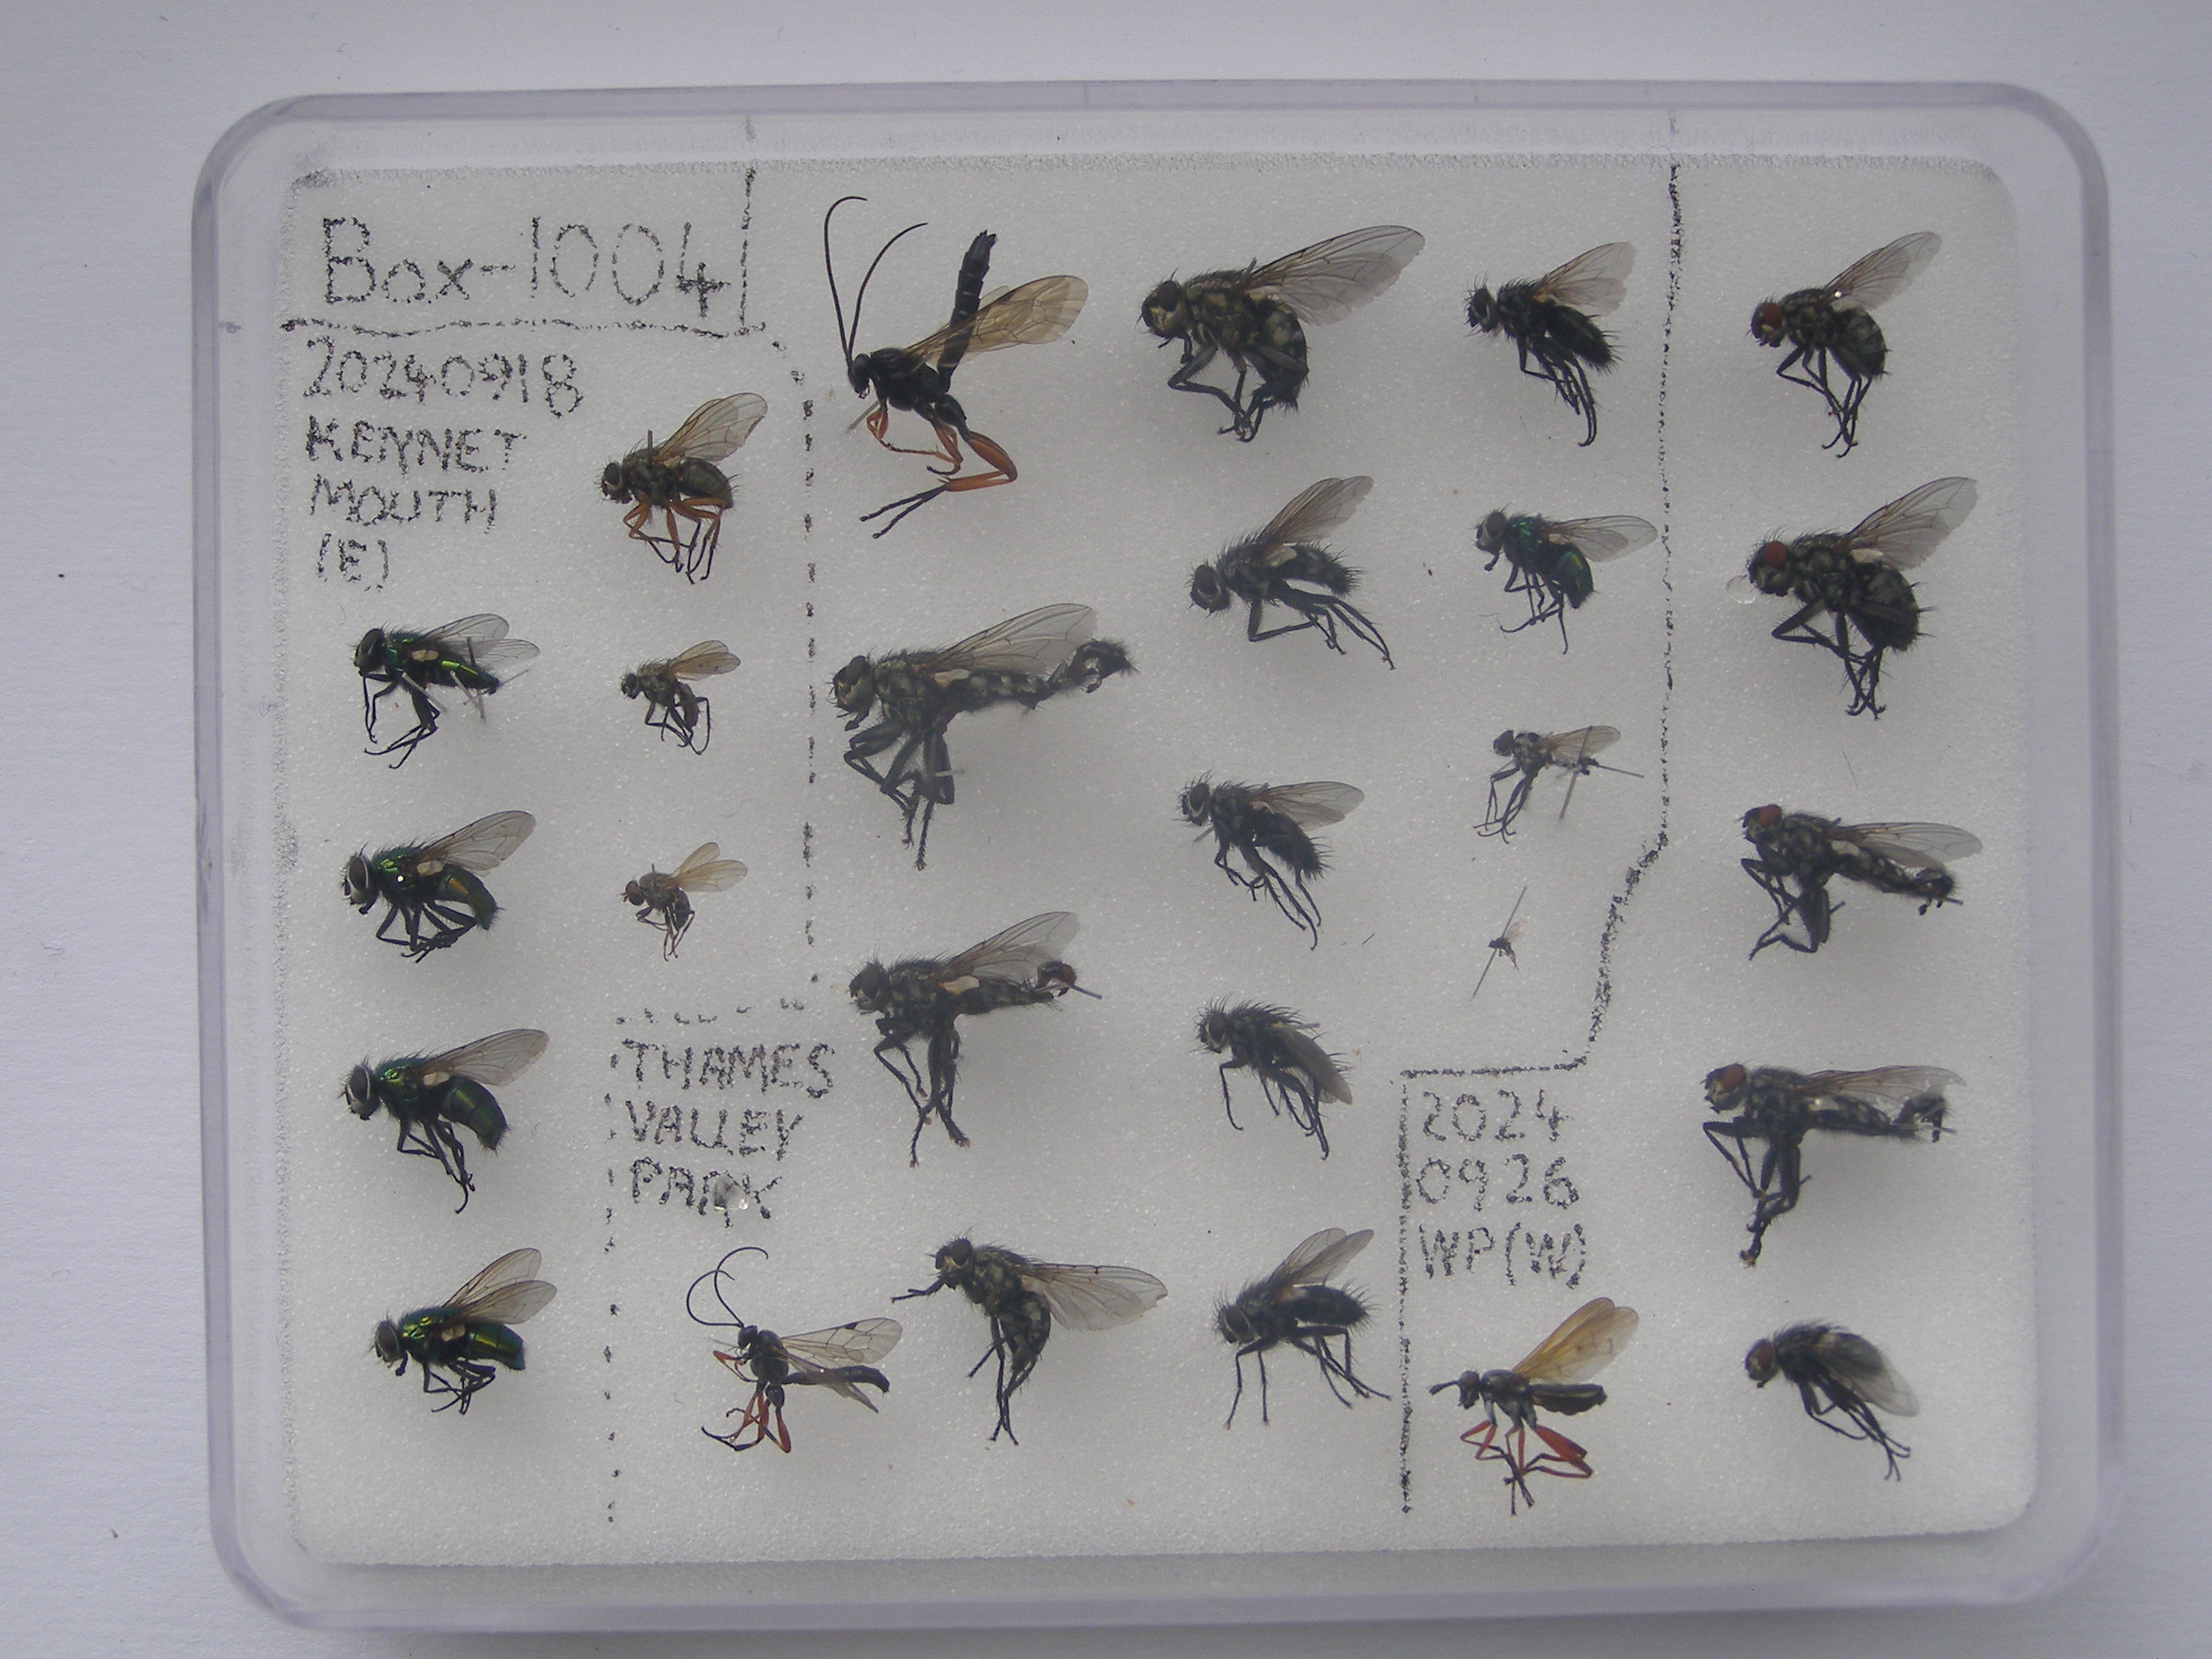 Box-1004
20240918
KENNET
MOUTH
(E)
THAMES
VALLEY
PARK
2024
0926
WP(W)